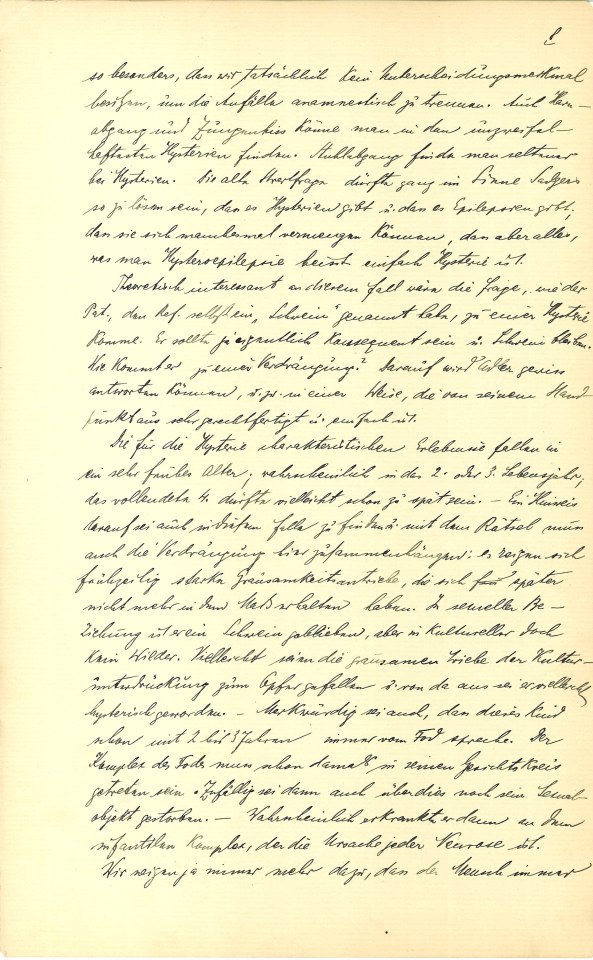 so besonders, dass wir tatsächlich kein Unterscheidungsmerkmal
besitzen, um die Anfälle anamnestisch zu trennen. Auch Harn-
abgang und Zungenbiss könne man in den unzweifel-
haftesten Hysterien finden. Stuhlabgang finde man seltener
bei Hysterien. Die alte Streitfrage dürfte ganz im Sinne Sadgers
so zu lösen sein, dass es Hysterien gibt u. dass es Epilepsien gibt;
dass sie sich manchesmal vermengen können, dass aber alles,
was man Hysteroepilepsie heisst einfach Hysterie ist.
Theoretisch interessant an diesem Fall wäre die Frage, wie der
Pat., den Ref. selbst ein „Schwein" genannt habe, zu einer Hysterie
komme. Er sollte ja eigentlich konsequent sein u. Schwein bleiben.
Wie kommt er zu einer Verdrängung? Darauf wird Adler gewiss
antworten können, u. zw. in einer Weise, die von seinem Stand
punkt aus sehr gerechtfertigt u. einfach ist.
Die für die Hysterie charakteristischen Erlebnisse fallen in
ein sehr frühes Alter; wahrscheinlich in das 2. oder 3. Lebensjahr;
das vollendete 4. dürfte vielleicht schon zu spät sein. – Ein Hinweis
darauf sei auch in diesem Falle zu finden u. mit dem Rätsel muss
auch die Verdrängung hier zusammenhängen: es zeigen sich
frühzeitig starke Grausamkeitsantriebe, die sich später
nicht mehr in dem Maß erhalten haben. In sexueller Be-
ziehung ist er ein Schwein geblieben, aber in kultureller doch
kein Wilder. Vielleicht seien die grausamen Triebe der Kultur-
unterdrückung zum Opfer gefallen u. von da aus sei er vielleicht
hysterisch geworden. – Merkwürdig sei auch, dass dieses Kind
schon mit 2 bis 3 Jahren immer vom Tod spreche. Der
Komplex des Todes muss schon damals in seinen Gesichtskreis
getreten sein. Zufällig sei dann auch überdies noch sein Sexual-
objekt gestorben. – Wahrscheinlich erkrankte er dann an dem
infantilen Komplex, der die Ursache jeder Neurose ist.
Wir neigen ja immer mehr dazu, dass der Mensch immer